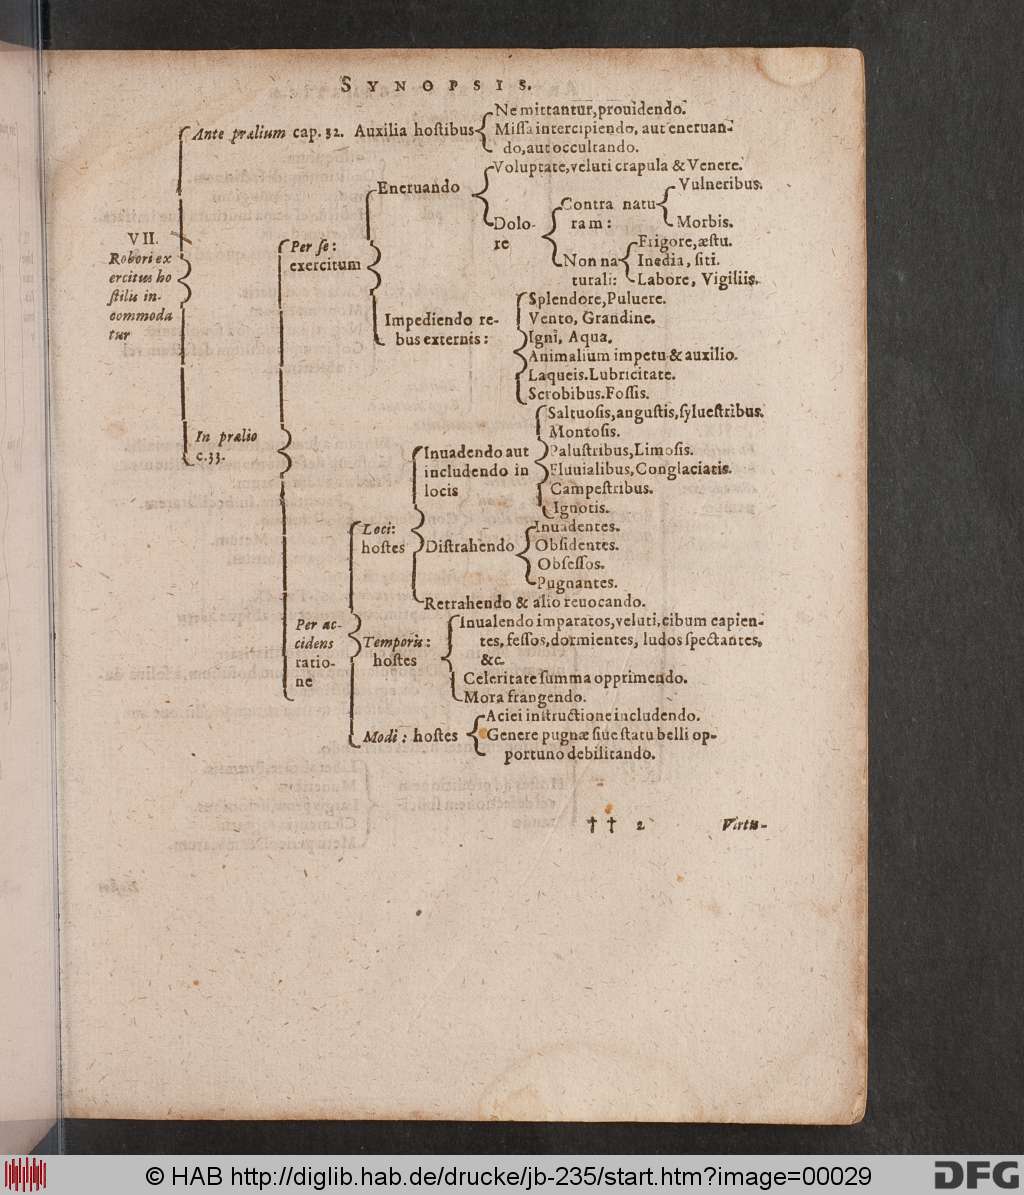 SYNOPSIS.
Ne mittantur, prouidendo.
Ante prælium cap. 32. Auxilia hostibus
Missa intercipiendo, aut eneruan-
do, aut occultando.
Voluptate, veluti crapula & Venere.
Eneruando
Dolo-
re
Contra natu
ram:
Vulneribus.
Morbis.
Non na
turali:
Frigore, æstu.
Inedia, siti.
Labore, Vigiliis.
VII.
Robori ex
ercitus ho
stilis in-
commoda
tur
Per se:
exercitum
Impediendo re-
bus externis:
Splendore, Puluere.
Vento, Grandine.
Igni, Aqua.
Animalium impetu & auxilio.
Laqueis. Lubricitate.
Scrobibus. Fossis.
In prælio
c. 33.
Inuadendo aut
includendo in
locis
Saltuosis, angustis, syluestribus.
Montosis.
Palustribus, Limosis.
Fluuialibus, Conglaciatis.
Campestribus.
Ignotis.
Loci:
hostes
Distrahendo
Inuadentes.
Obsidentes.
Obsessos.
Pugnantes.
Retrahendo & alio reuocando.
Per ac-
cidens
ratio-
ne
Temporis:
hostes
Inualendo imparatos, veluti, cibum capien-
tes, fessos, dormientes, ludos spectantes,
&c.
Celeritate summa opprimendo.
Mora frangendo.
Modi: hostes
Aciei instructione includendo.
Genere pugnæ siue statu belli op-
portuno debilitando.
† † 2 Virtu-
© HAB http://diglib.hab.de/drucke/jb-235/start.htm?image=00029
DFG